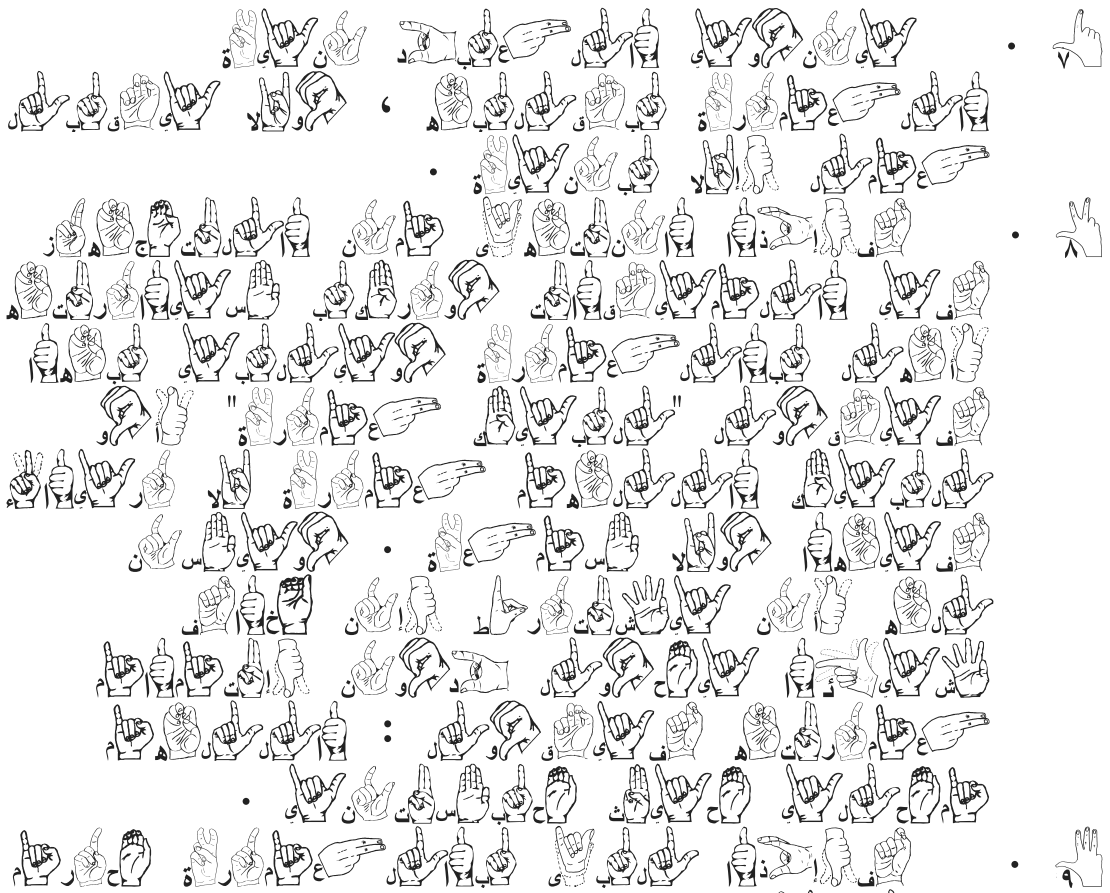 ٧ . ينوي العبد نية
العمرة بقلبه ، ولا يقبل
عمل الا بنية .
٨ . فاذا انتهى من التجهز
في الميقات وركب سيارته
اهل بالعمرة ويلبي بها
فيقول " لبيك عمرة " او
لبيك اللهم عمرة لا رياء
فيها ولا سمعة . ويسن
له ان يشترط ان خاف
شيئا يحول دون اتمام
عمرته فيقول : اللهم
محلي حيث حبستني .
٩ . فاذا لبى بالعمرة حرم